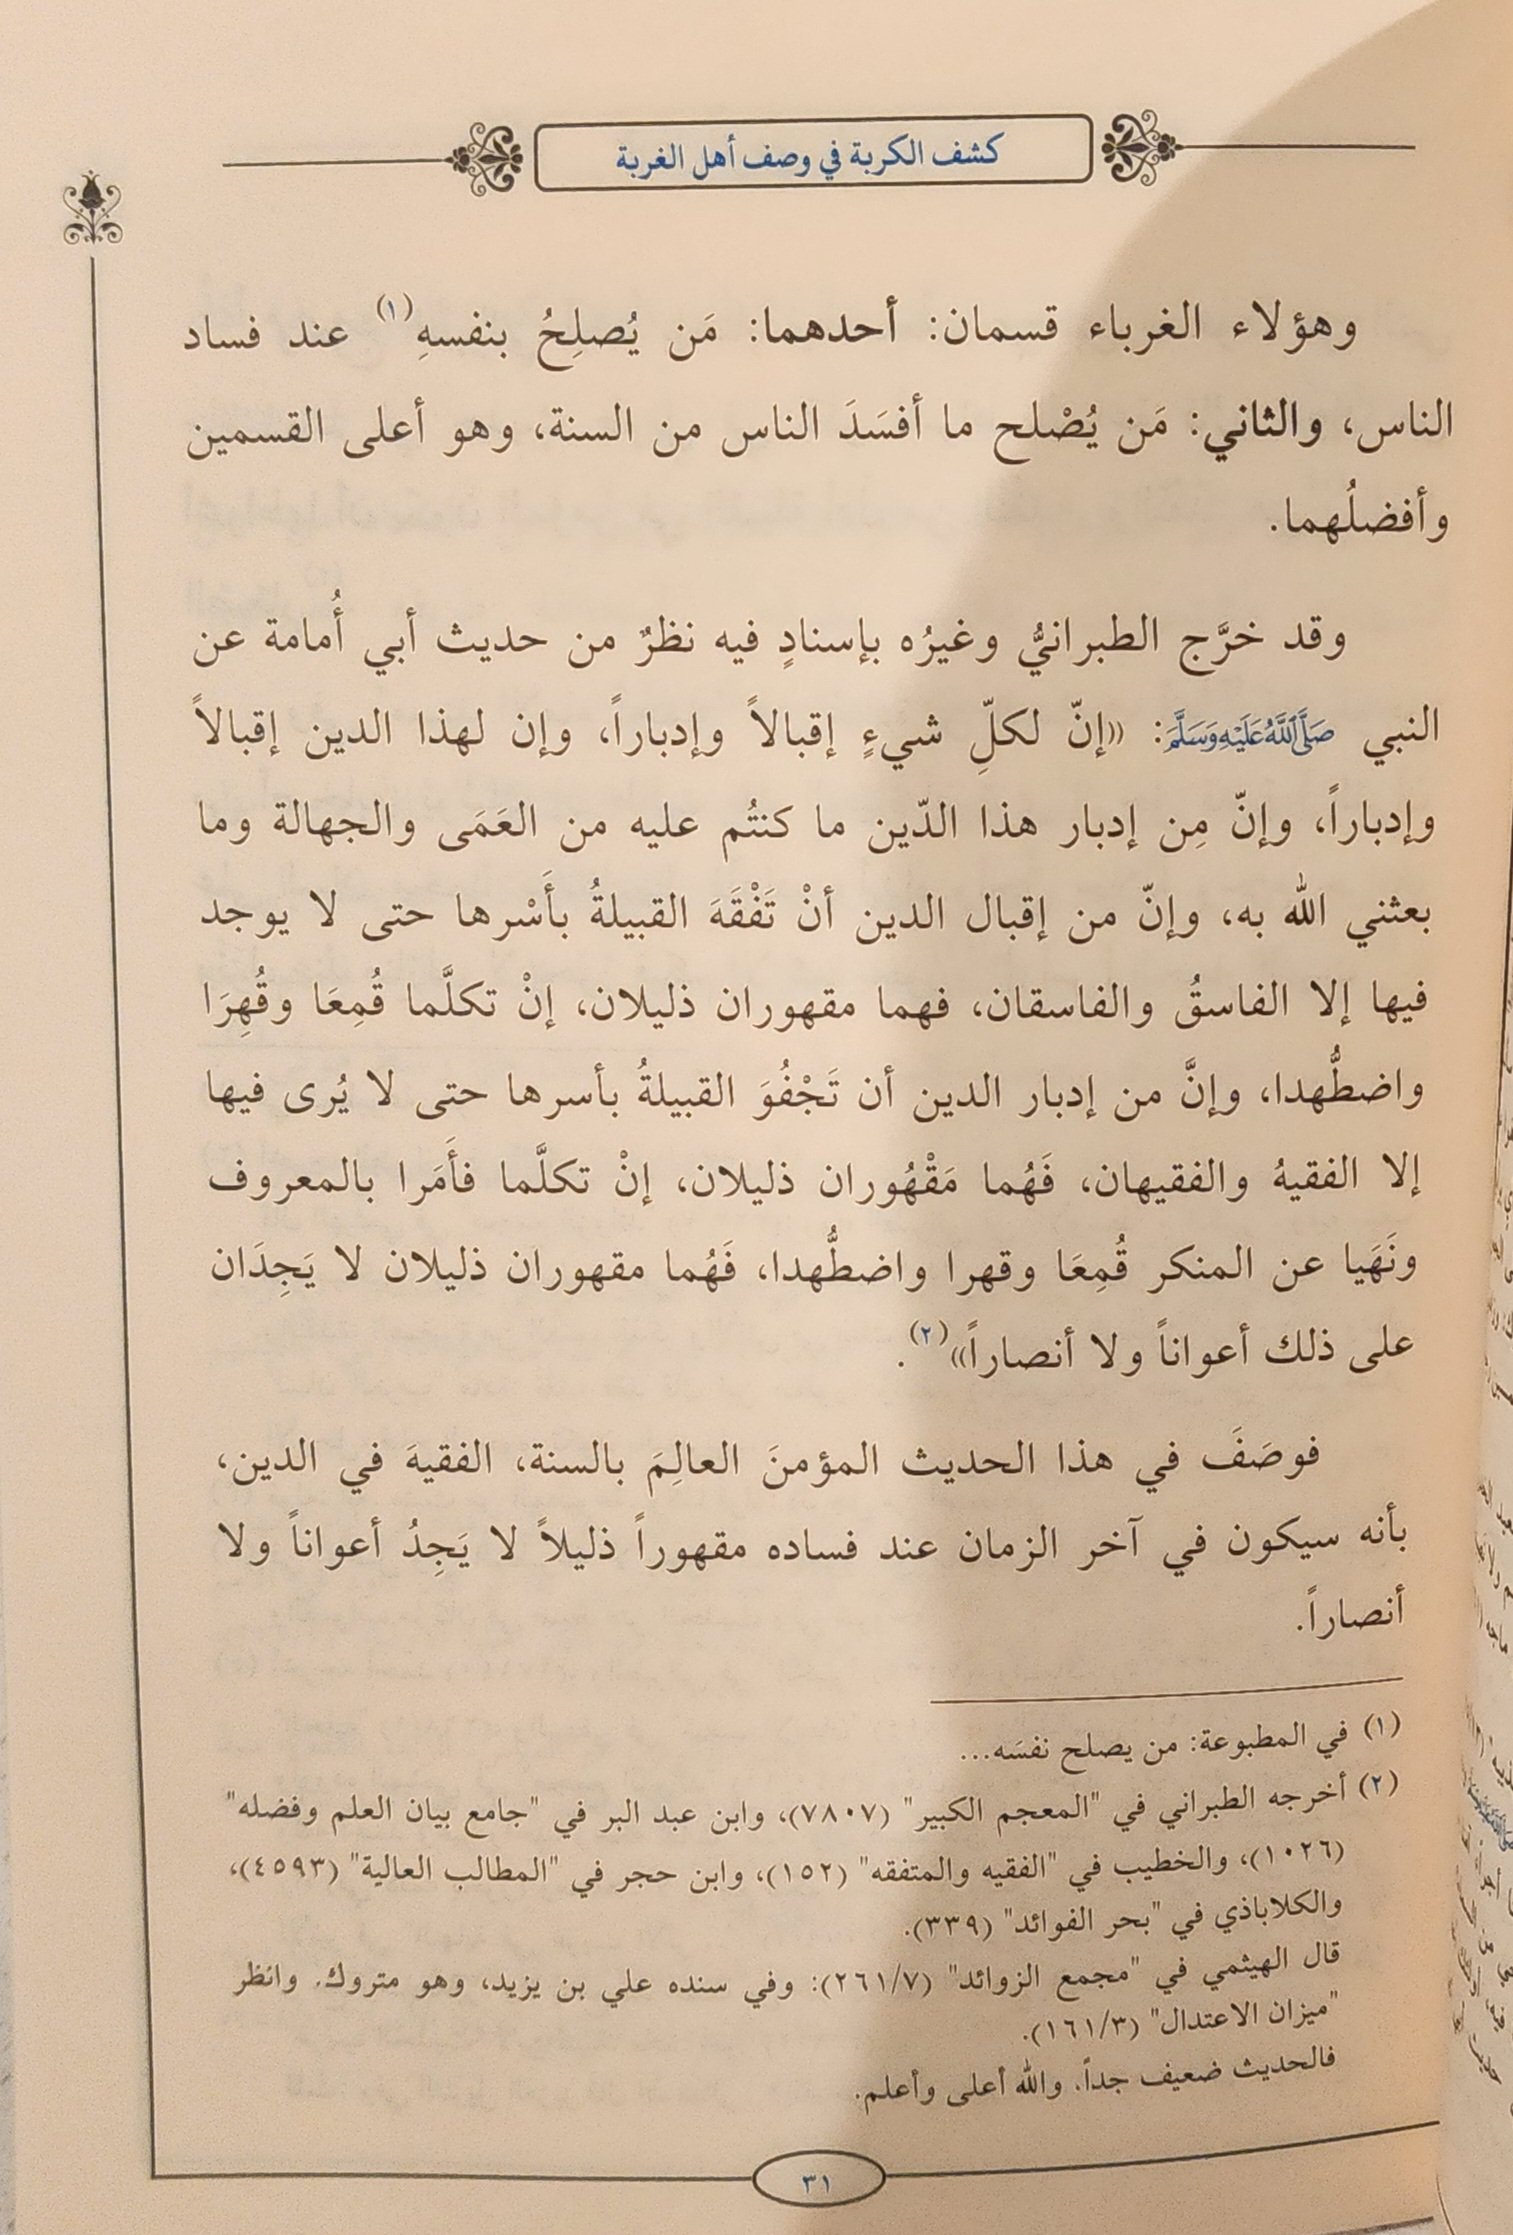 كشف الكربة في وصف أهل الغربة
وهؤلاء الغرباء قسمان: أحدهما: مَن يُصلِحُ بنفسهِ(١) عند فساد
الناس، والثاني: مَن يُصْلح ما أفسَدَ الناس من السنة، وهو أعلى القسمين
وأفضلُهما.
وقد خرَّج الطبرانيُّ وغيرُه بإسنادٍ فيه نظرٌ من حديث أبي أُمامة عن
النبي صَلَّى اللَّهُ عَلَيْهِ وَسَلَّمَ: «إنّ لكلِّ شيءٍ إقبالاً وإدباراً، وإن لهذا الدين إقبالاً
وإدباراً، وإنّ مِن إدبار هذا الدّين ما كنتُم عليه من العَمَى والجهالة وما
بعثني الله به، وإنّ من إقبال الدين أنْ تَفْقَهَ القبيلةُ بأَسْرها حتى لا يوجد
فيها إلا الفاسقُ والفاسقان، فهما مقهوران ذليلان، إنْ تكلَّما قُمِعَا وقُهِرَا
واضطُّهدا، وإنَّ من إدبار الدين أن تَجْفُوَ القبيلةُ بأسرها حتى لا يُرى فيها
إلا الفقيهُ والفقيهان، فَهُما مَقْهُوران ذليلان، إنْ تكلَّما فأَمَرا بالمعروف
ونَهَيا عن المنكر قُمِعَا وقهرا واضطُّهدا، فَهُما مقهوران ذليلان لا يَجِدَان
على ذلك أعواناً ولا أنصاراً»(٢).
فوصَفَ في هذا الحديث المؤمنَ العالِمَ بالسنة، الفقيهَ في الدين،
بأنه سيكون في آخر الزمان عند فساده مقهوراً ذليلاً لا يَجِدُ أعواناً ولا
أنصاراً.
(١) في المطبوعة: من يصلح نفسَه...
(٢) أخرجه الطبراني في "المعجم الكبير" (٧٨٠٧)، وابن عبد البر في "جامع بيان العلم وفضله"
(١٠٢٦)، والخطيب في "الفقيه والمتفقه" (١٥٢)، وابن حجر في "المطالب العالية" (٤٥٩٣)،
والكلاباذي في "بحر الفوائد" (٣٣٩).
قال الهيثمي في "مجمع الزوائد" (٢٦١/٧): وفي سنده علي بن يزيد، وهو متروك. وانظر
"ميزان الاعتدال" (١٦١/٣).
فالحديث ضعيف جداً. والله أعلى وأعلم.
٣١